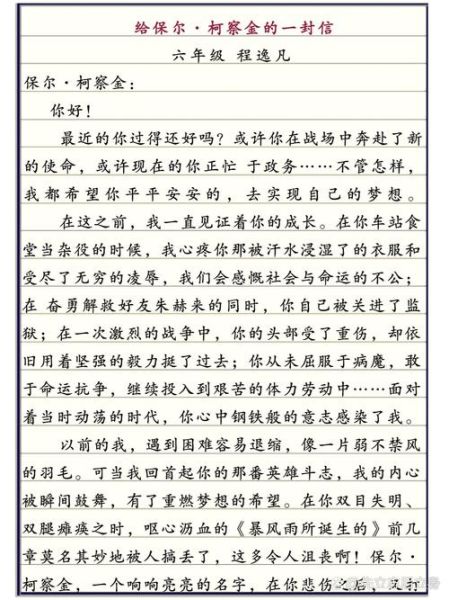 给保尔·柯察金的一封信
六年级 程逸凡
保尔·柯察金：
你好！
最近的你过得还好吗？或许你在战场中奔赴了新
的使命，或许现在的你正忙 于政务……不管怎样，
我都希望你平平安安的，去实现自己的梦想。
在这之前，我一直见证着你的成长。在你车站食
堂当杂役的时候，我心疼你那被汗水浸湿了的衣服和
受尽了无穷的凌辱，我们会感慨社会与命运的不公；
在 奋勇解救好友朱赫来的同时，你自己被关进了监
狱；在一次激烈的战争中，你的头部受了重伤，却依
旧用着坚强的毅力挺了过去；你从未屈服于病魔，敢
于命运抗争，继续投入到艰苦的体力劳动中……面对
着当时动荡的时代，你心中钢铁般的意志感染了我。
以前的我，遇到困难容易退缩，像一片弱不禁风
的羽毛。可当我回首起你的那番英雄斗志，我的内心
被瞬间鼓舞，有了重燃梦想的希望。在你双目失明、
双腿瘫痪之时，呕心沥血的《暴风雨所诞生的》前几
章莫名其妙地被人搞丢了，这多令人沮丧啊！保尔·
柯察金，一个响响亮亮的名字，在你悲伤之后，又打